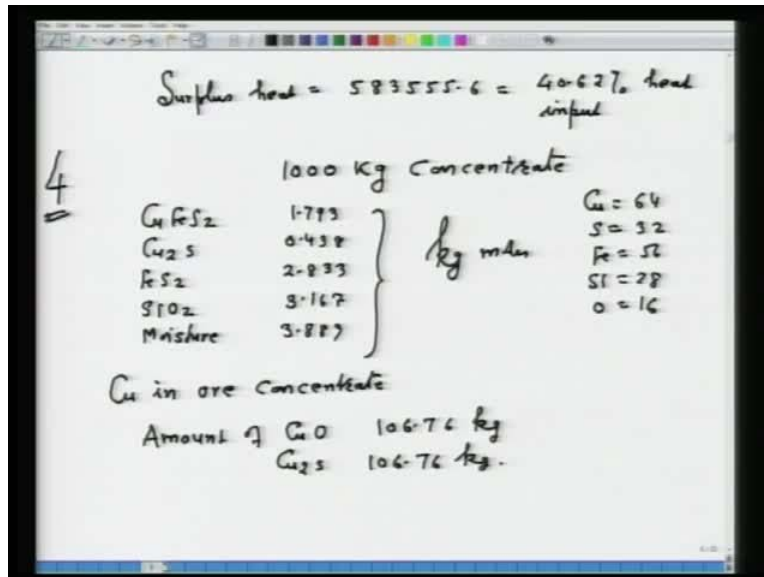 Surplus heat = 583555.6 = 40.62% heat
input
4
1000 Kg Concentrate
CuFeS2 1.793
Cu2S 0.438
FeS2 2.833
SiO2 3.167
Moisture 3.889
kg moles
Cu = 64
S = 32
Fe = 56
Si = 28
O = 16
Cu in ore concentrate
Amount of CuO 106.76 kg
Cu2S 106.76 kg.